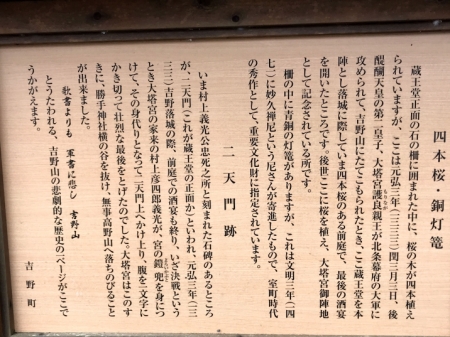 四本桜・銅灯篭
蔵王堂正面の石の柵に囲まれた中に、桜の木が四本植え
られていますが、ここは元弘三年(一三三三)閏二月三日、後
醍醐天皇の第二皇子、大塔宮護良親王が北条幕府の大軍に
攻められて、吉野山にたてこもられたとき、ここ蔵王堂を本
陣とし落城に際していま四本桜のある前庭で、最後の酒宴
を開いたところです。後世ここに桜を植え、大塔宮御陣地
として記念されている所です。
柵の中に青銅の灯篭がありますが、これは文明三年(四
七一)に妙久禅尼という尼さんが寄進したもので、室町時代
の秀作として、重要文化財に指定されています。
二天門跡
いま村上義光公忠死之所と刻まれた石碑のあるところ
が、二天門(これが蔵王堂の正面か)といわれ、元弘三年(一三
三三)吉野落城の際、前庭での酒宴も終り、いざ決戦という
とき大塔宮の家来の村上彦四郎義光が、宮の鎧兜を身につ
けて、その身代りとなって二天門上へかけ上り、腹を一文字に
かき切って壮烈な最後をとげたのでした。大塔宮はこのす
きに、勝手神社横の谷を抜け、無事高野山へ落ちのびること
が出来ました。
歌書よりも 軍書に悲し 吉野山
とうたわれる、吉野山の悲劇的な歴史の一ページがここで
うかがえます。
吉野町